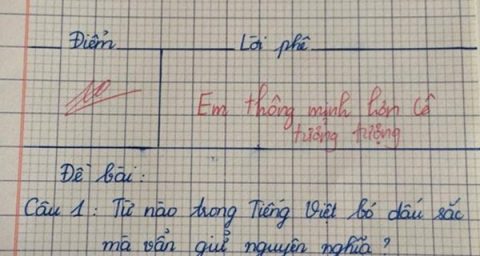 Điểm Lời phê
10
Em thông minh hơn Cô
tưởng tượng
Đề bài:
Câu 1: Từ nào trong Tiếng Việt bỏ dấu sắc
mà vẫn giữ nguyên nghĩa?